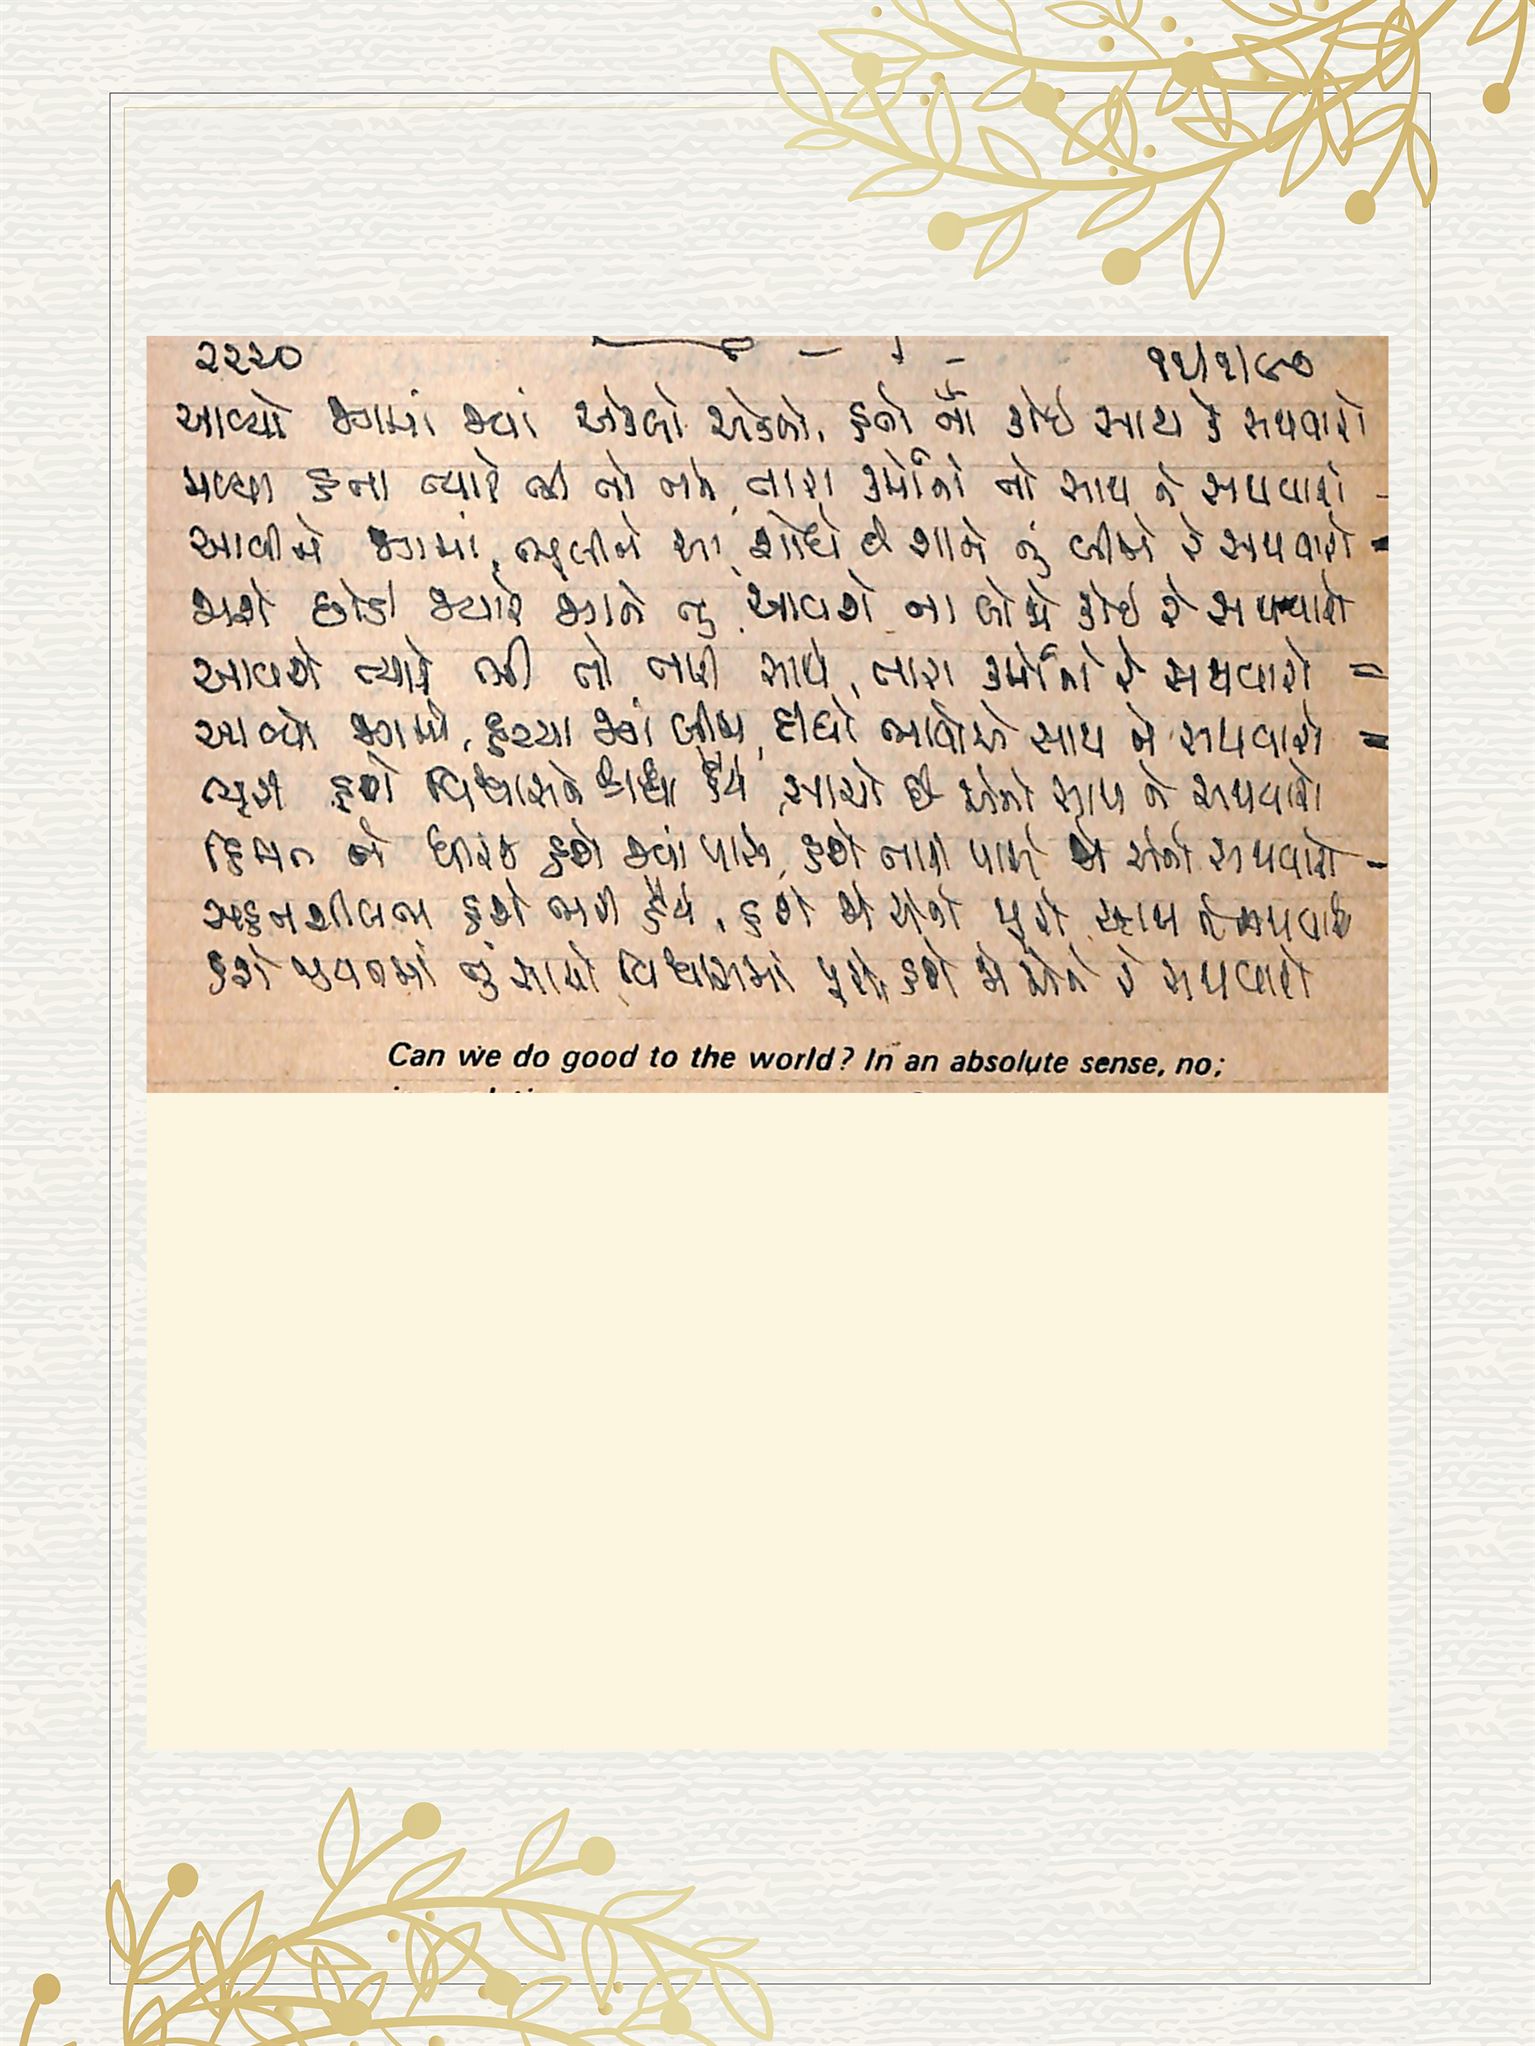 ૨૨૨૦ ૧૧/૧/૯૦
આવ્યો જગમાં જ્યાં એકલો એકલો, હતો ના કોઈ સાથ કે સથવારો
મળ્યા હતા ત્યારે ભી તો તને, તારા કર્મોનો તો સાથ ને સથવારો -
આવીને જગમાં, ભૂલીને આ, શોધે છે શાને તું બીજો રે સથવારો =
જાશે છોડી જ્યારે જગને તું, આવશે ના બીજો કોઈ રે સથવારો
આવશે ત્યારે ભી તો તારી સાથે, તારા કર્મોનો રે સથવારો =
આવ્યો જગમાં, ફરક્યા જ્યાં બીજ, દીધો ભાવોએ સાથ ને સથવારો =
ભૂરી હશે વિશ્વાસને હૈયે, સાચો છે એનો સાથ ને સથવારો
હિંમત ને ધીરજ હશે જ્યાં પાસે, હશે તારી પાસે એ એનો સથવારો -
સહનશીલતા હશે ભરી હૈયે, હશે એ એનો પૂરો સાથ ને સથવારો
હશે જીવનમાં તું સાચો વિશ્વાસમાં પૂરો, હશે એ એનો રે સથવારો
Can we do good to the world? In an absolute sense, no;